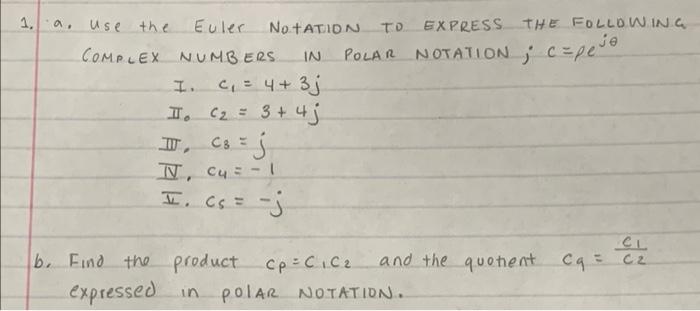 1. a. Use the Euler NotATION TO EXPRESS THE FOLLOWING
COMPLEX NUMBERS IN POLAR NOTATION; c=ρe^jθ
I. c₁ = 4+3j
II. c₂ = 3+4j
III. c₃ = j
IV. c₄ = -1
V. c₅ = -j
b. Find the product cp=c₁c₂ and the quotient cq = c₁/c₂
expressed in polAR NOTATION.